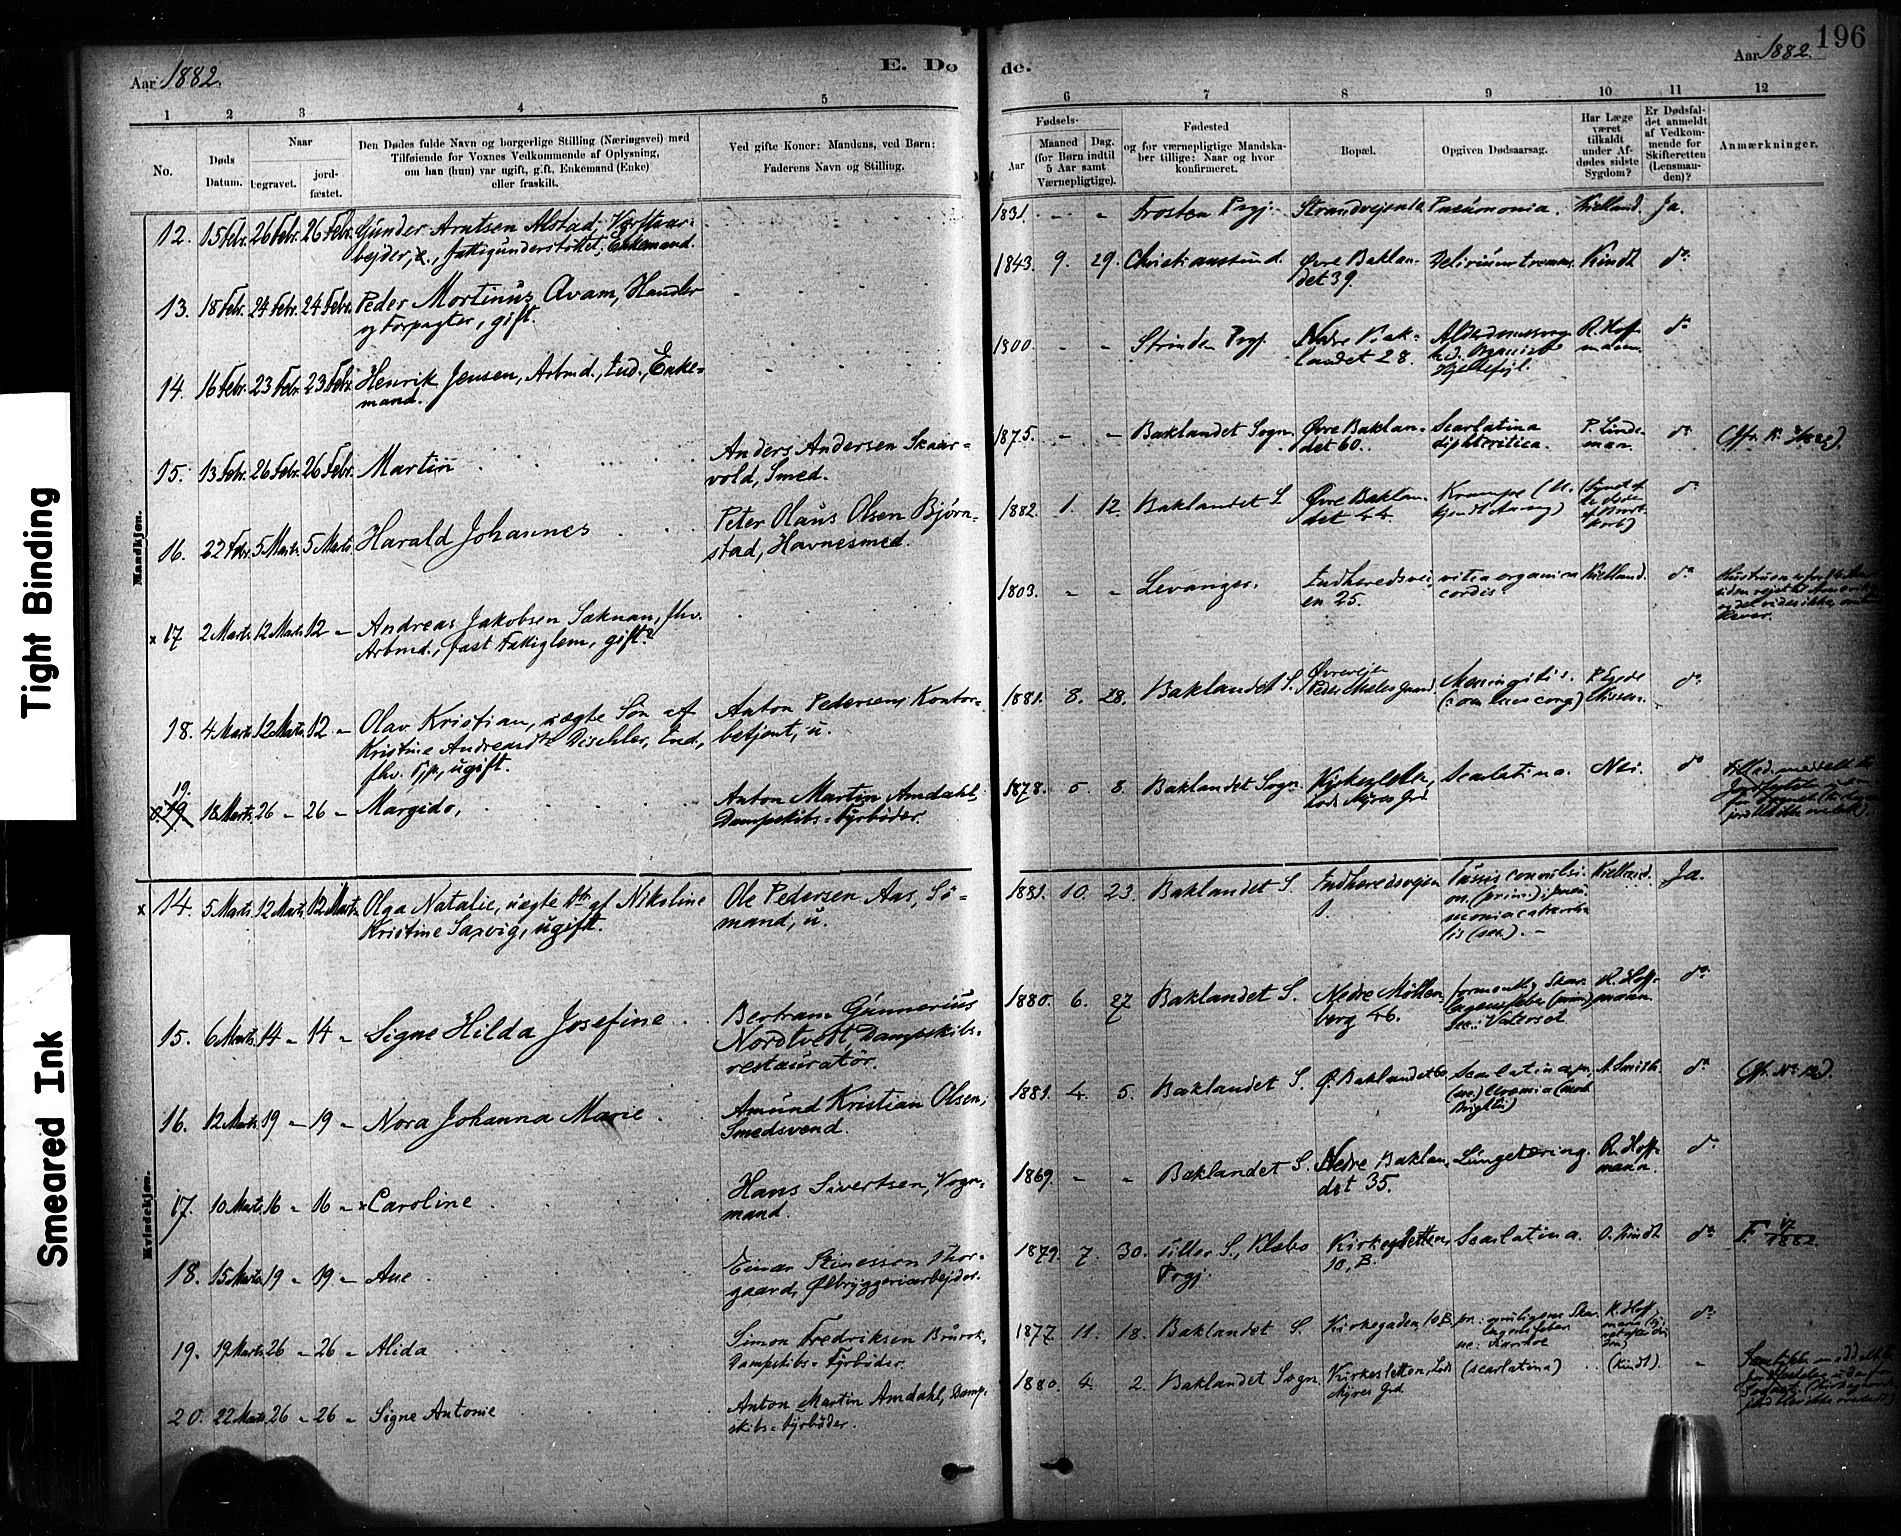 196
Aar 1882.
E. Dø
de.
Aar 1882.
1 2 3 4 5
6 7 8 9 10 11 12
No.
Døds Datum.
Naar
begravet.
jord-
fæstet.
Den Dødes fulde Navn og borgerlige Stilling (Næringsvei) med
Tilføiende for Voxnes Vedkommende af Oplysning,
om han (hun) var ugift, gift, Enkemand (Enke)
eller fraskilt.
Ved gifte Koner: Mandens, ved Børn:
Faderens Navn og Stilling.
Fødsels-
Aar
Maaned Dag.
(for Børn indtil
5 Aar samt
Værnepligtige).
Fødested
og for værnepligtige Mandska-
ber tillige: Naar og hvor
konfirmeret.
Bopæl.
Opgiven Dødsaarsag.
Har Læge
været
tilkaldt
under Af-
dødes sidste
Sygdom?
Er Dødsfal-
det anmeldt
af Vedkom-
mende for
Skifteretten
(Lensman-
den)?
Anmærkninger.
Mandkjøn.
12. 15 Febr. 26 Febr. 26 Febr. Gunder Arntsen Alstad, Værftsar-
bejder, fattigunderstøttet, Enkemand.
1831. - - Frosten Prgj. Strandvejen Pneumonia. Kielland. Ja.
13. 18 Febr. 24 Febr. 24 Febr. Peder Mortinus Avam, Handler
og Forpagter, gift.
1843. 9. 29. Christianssund. Øvre Baklan-
det 39. Delirium tremens. Kindt do
14. 16 Febr. 23 Febr. 23 Febr. Henrik Jensen, Arbmd., Ind., Enke-
mand.
1800. - - Strinden Prgj. Nedre Bak-
landet 28. R. Hoff-
mann. do
15. 13 Febr. 26 Febr. 26 Febr. Martin
Anders Andersen Skaar-
vold, Smed.
1875. - - Baklandet Sogn. Øvre Baklan-
det 60. Scarlatina
diphteritica. P. Linde-
man. do
16. 22 Febr. 5 Marts 5 Marts Harald Johannes
Peter Olaus Olsen Bjørn-
stad, Havnesmed.
1882. 1. 12. Baklandet S. Øvre Baklan-
det 44. Krampe do
x 17 2 Marts 12 Marts 12 - Andreas Jakobsen Saknan, fhv.
Arbmd., fast Fattiglem, gift?
1803. - - Levanger. Indheredsvei-
en 25. vitia organica
cordis Kielland. do
18. 4 Marts 12 Marts 12 - Olav Kristian, uægte Søn af
Kristine Andreasdtr Dischler, Ind.,
fhv. Tjp., ugift.
Anton Pedersen, Kontor-
betjent, u.
1881. 8. 28. Baklandet S. Øvreveien
Meningitis. do
19.
19 18 Marts 26 - 26 - Margido,
Anton Martin Amdahl,
Dampskibs-Fyrbøder.
1878. 5. 8. Baklandet Sogn Kirkesletten,
Lods Myres Grd Scarlatina. Nei. do
Kvindekjøn.
x 14. 5 Marts 12 Marts 12 Marts Olga Natalie, uægte Dtr af Nikoline
Kristine Saxvig, ugift.
Ole Pedersen Aas, Sø-
mand, u.
1881. 10. 23. Baklandet S. Indheredsvejen
1 Tussis convulsi-
va (prim); pneu-
monia catarrha-
lis (sec.). - Kielland. Ja.
15. 6 Marts 14 - 14 - Signe Hilda Josefine
Bertram Gunnerius
Nordtvedt, Dampskibs-
restauratør.
1880. 6. 27 Baklandet S. Nedre Møllen-
berg 46. formentlig Skar-
lagensfeber (prim)
Sec.: Vatersot R. Hoff-
mann. do
16. 12 Marts 19 - 19 - Nora Johanna Marie
Amund Kristian Olsen,
Smedsvend.
1881. 4. 5. Baklandet S. Ø. Baklandet 60 Scarlatina, pr.
(sec) Uremia (morb.
Brightii) A. Smith. do
17. 10 Marts 16 - 16 - x Caroline
Hans Sivertsen, Vogn-
mand.
1869. - - Baklandet S. Nedre Baklan-
det 35. Lungetæring. R. Hoff-
mann. do
18. 15 Marts 19 - 19 - Ane
Einar Thor-
gaard, Ølbryggeriarbejder.
1879. 7. 30. Tiller S., Klæbo
Prgj. Kirkesletten
10, B. Scarlatina. O. Kindt do
19. 19 Marts 26 - 26 - Alida
Simon Fredriksen
Dampskibs-Fyrbøder.
1877. 11. 18. Baklandet S. Kirkegaden, 10 B. pr.: Skar-
lagensfeber
R. Hoff-
mann do
20. 22 Marts 26 - 26 - Signe Antonie
Anton Martin Amdahl, Damp-
skibs-Fyrbøder.
1880. 4. 2. Baklandet Sogn. Kirkesletten, Lods
Myres Grd (scarlatina) (Kindt) -
Tight Binding
Smeared Ink